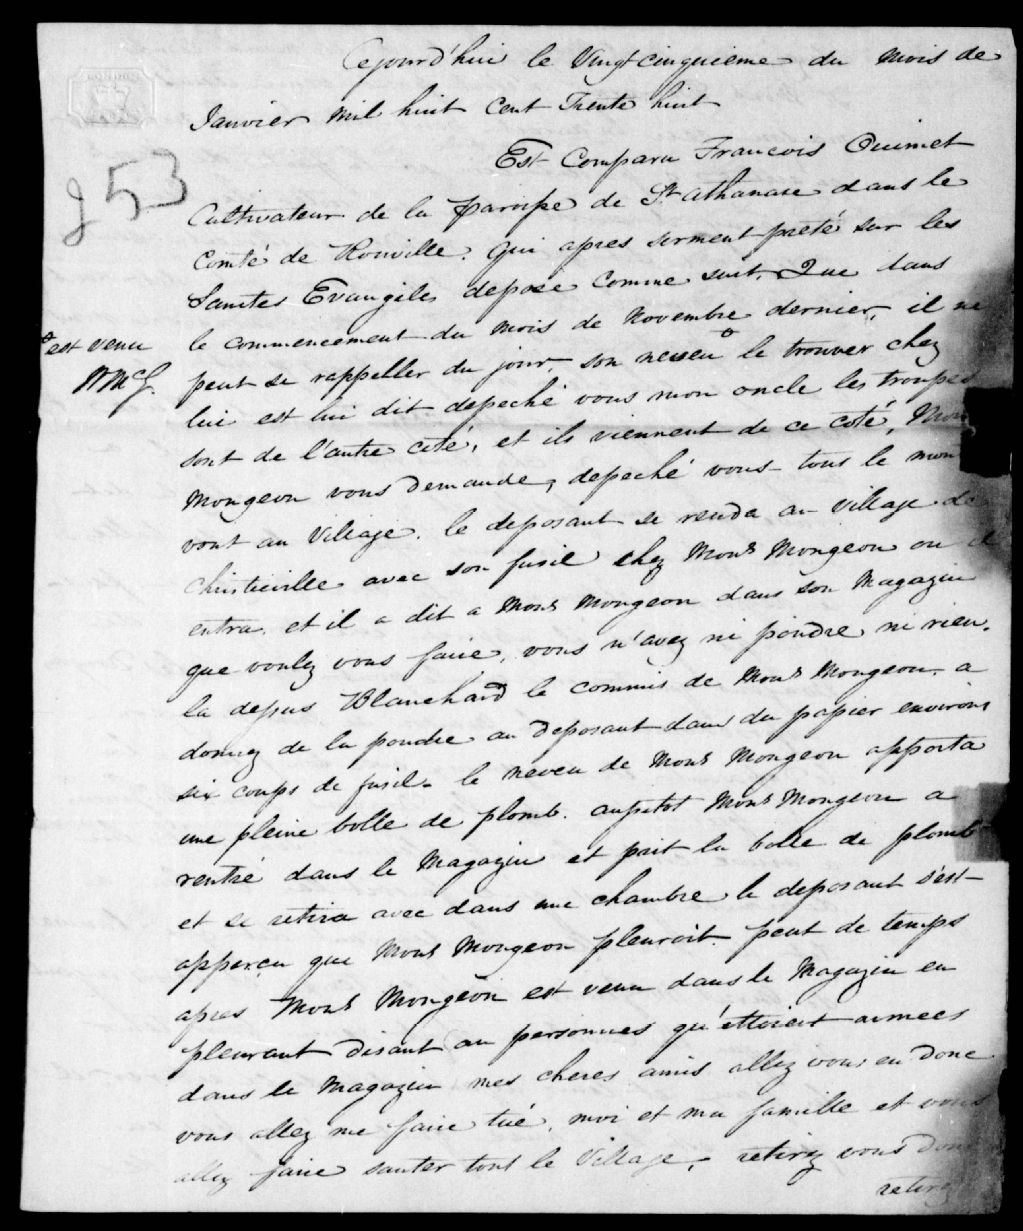 Cejourd'hui le Vingt cinquieme du mois de
Janvier mil huit Cent Trente huit
853
Est Comparu Francois Ouimet
Cultivateur de la Paroisse de St Athanase dans le
Comté de Rouville. qui apres serment preté sur les
Saintes Evangiles depose comme suit. Que dans
le commencement du mois de Novembre dernier, il ne
peut se rappeller du jour, son neveu + le trouver chez
+ est venu
W McG.
lui et lui dit depeché vous mon oncle les troupes
sont de l'autre coté, et ils viennent de ce coté, Mons
Mongeon vous demande, depeché vous tous le mon
vont au Village. le deposant se renda au village de
Christieville avec son fusil chez Mons Mongeon ou il
entra. et il a dit a Mons Mongeon dans son Magazin
que voulez vous faire, vous n'avez ni poudre ni rien.
la depus Blanchard le commis de Mons Mongeon a
donnez de la poudre au Deposant dans du papier environs
six coups de fusil. le neveu de Mons Mongeon apporta
une pleine bolle de plomb. aussitot Mons Mongeon a
rentré dans le Magazin et prit la bolle de plomb
et se retira avec dans une chambre le deposant s'est
apperçu que Mons Mongeon pleuroit. peut de temps
apres Mons Mongeon est venu dans le Magazin en
pleurant disant au personnes qu'ettoient armees
dans le Magazin mes cheres amis allez vous en donc
vous allez me faire tué, moi et ma famille et vous
allez faire sauter tout le Village, retirez vous donc
retirez